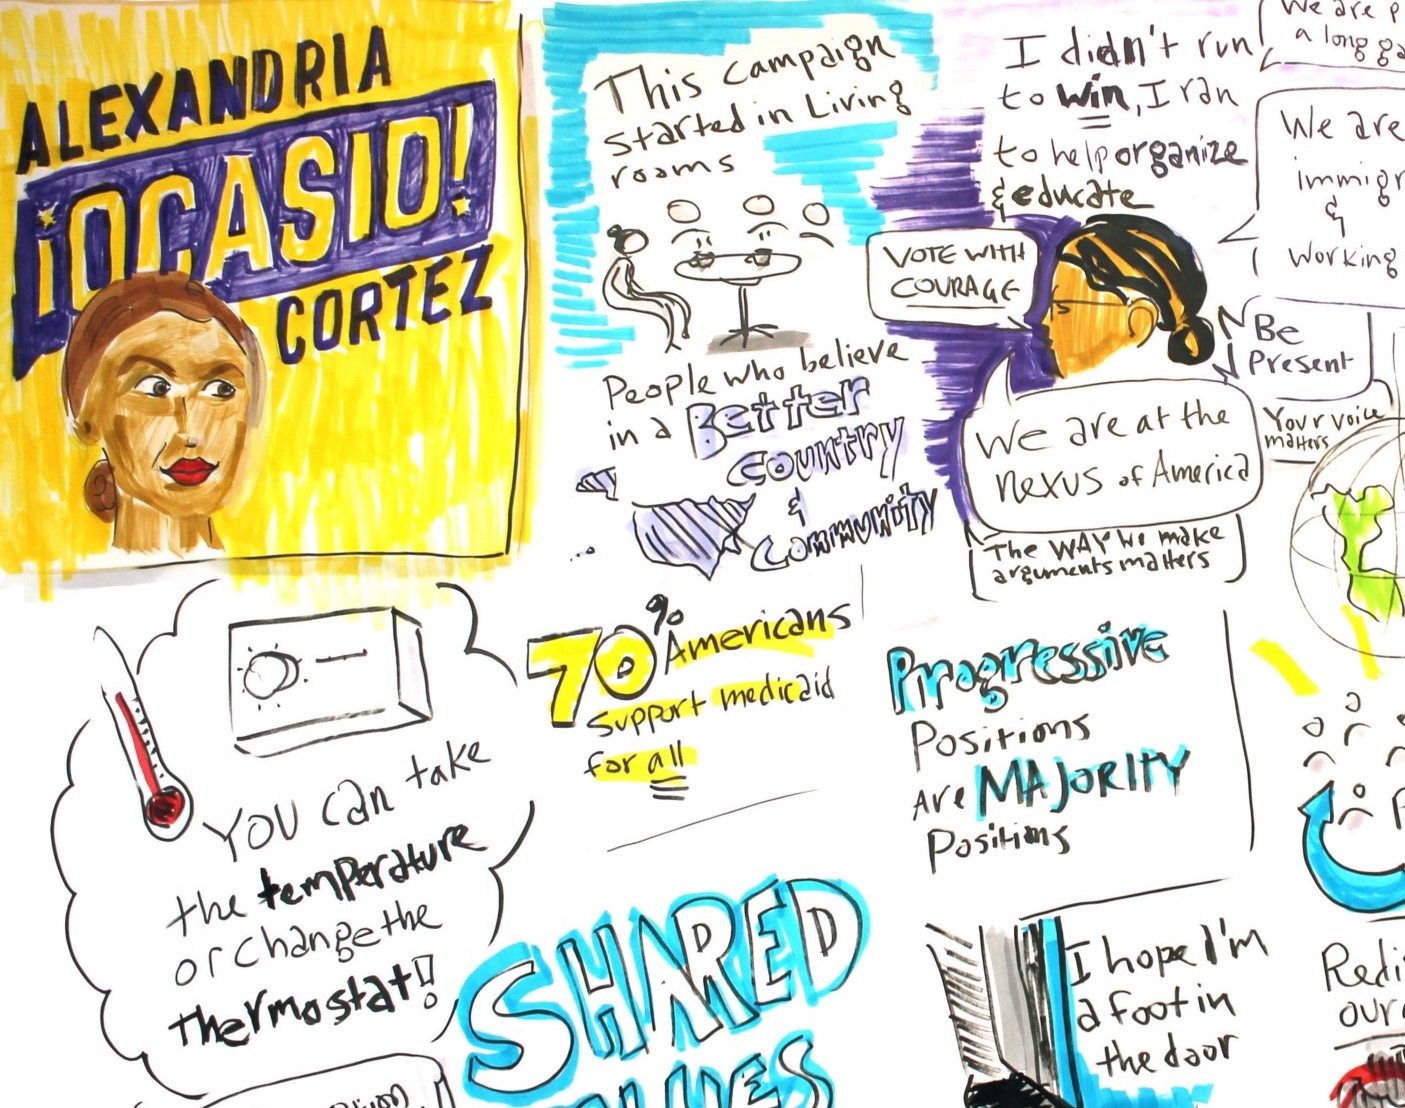 ALEXANDRIA
¡OCASIO!
CORTEZ
This campaign
started in Living
rooms
People who believe
in a Better
country
&
Community
I didn't run
to win, I ran
to help organize
& educate
VOTE WITH
COURAGE
We are at the
nexus of America
The WAY we make
arguments matters
We are
a long
We are
&
working
Be
Present
Your voice
matters
You can take
the temperature
or change the
thermostat!!
70% Americans
support medicaid
for all
Progressive
Positions
Are MAJORITY
Positions
SHARED
I hope I'm
a foot in
the door
our